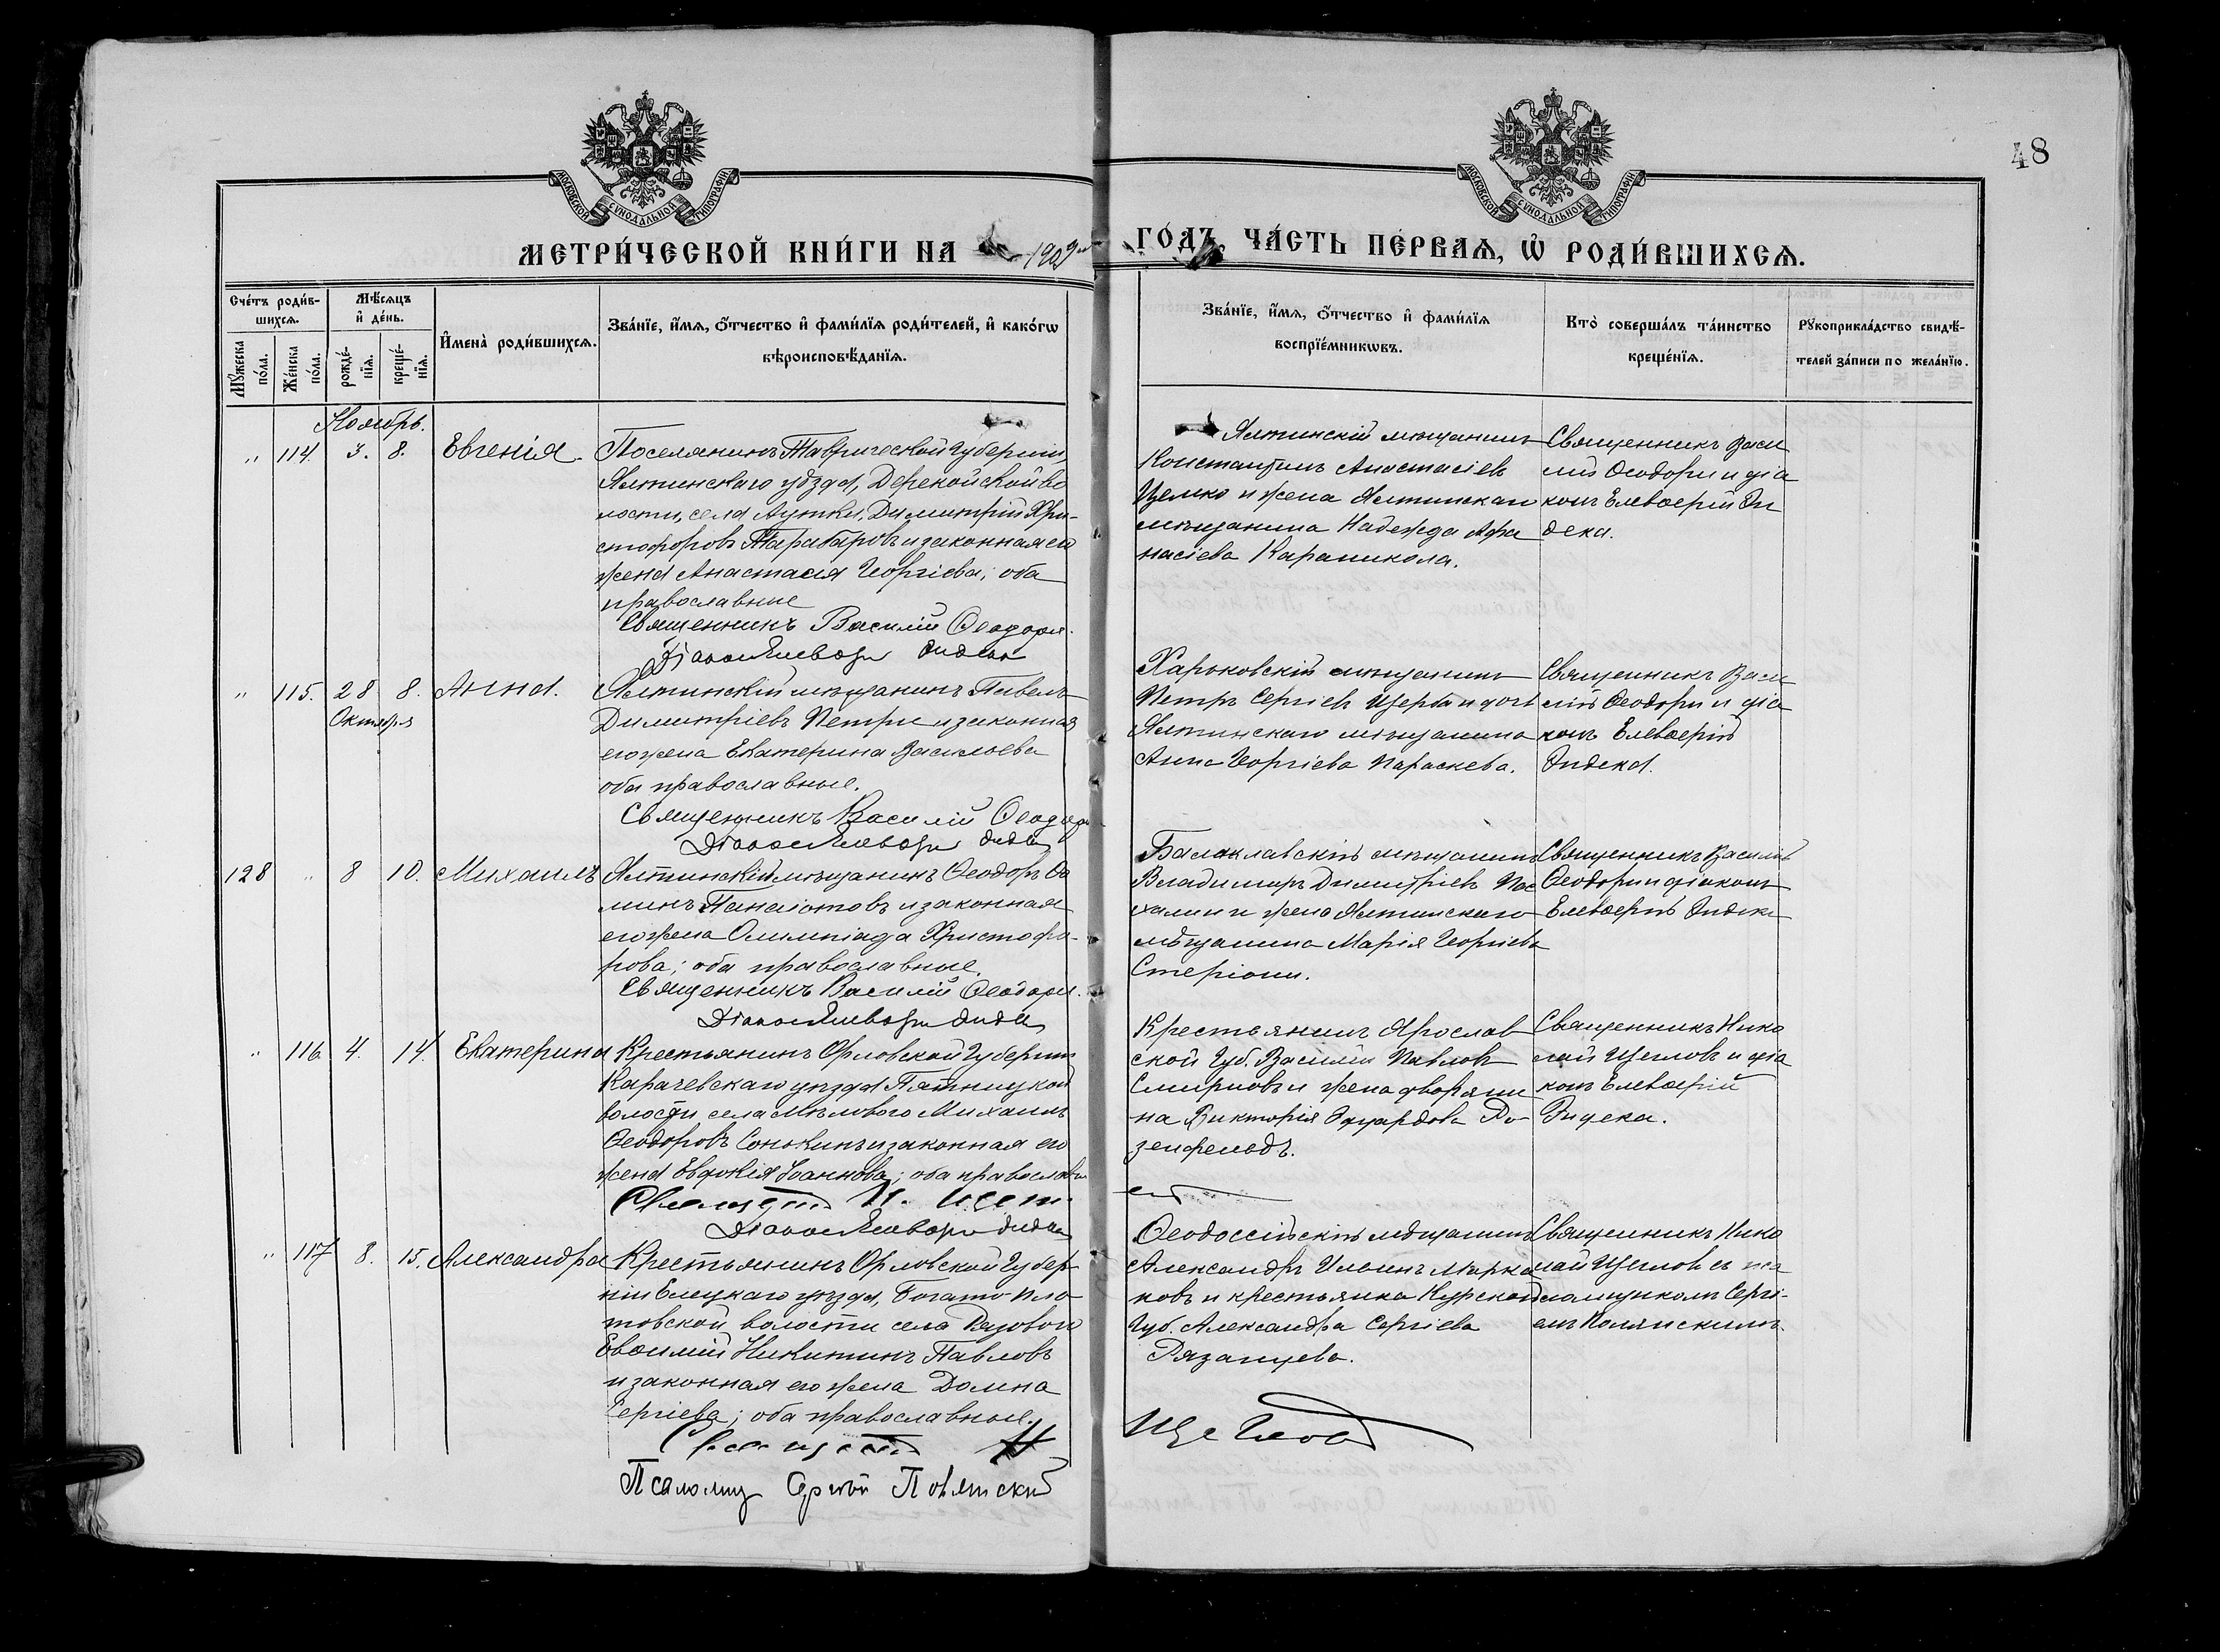 48
МОСКОВСКОЙ СѴНОДАЛЬНОЙ ТИПОГРАФІИ
МОСКОВСКОЙ СѴНОДАЛЬНОЙ ТИПОГРАФІИ
МЕТРИ́ЧЕСКОЙ КНИ́ГИ НА 1909 ГО́ДЪ, ЧА́СТЬ ПЕ́РВАѦ, Ѽ РОДИ́ВШИХСѦ.
Сче́тъ роди́в-
шихсѧ.
Мѹ́жеска
по́ла.
Же́нска
по́ла.
Мѣ́сѧцъ
и҆ де́нь.
рожде́-
нїѧ.
креще́-
нїѧ.
И҆мена̀ роди́вшихсѧ.
Зва́нїе, и҆́мѧ, ѻ҆́тчество и҆ фами́лїѧ роди́телей, и҆ како́гѡ
вѣроисповѣ́данїѧ.
Зва́нїе, и҆́мѧ, ѻ҆́тчество и҆ фами́лїѧ
воспрїе́мникѡвъ.
Кто̀ соверша́лъ та́инство
креще́нїѧ.
Рѹкоприкла́дство свидѣ́-
телей за́писи по жела́нїю.
Ноябрь.
„ 114. 3. 8. Евгенія.
Поселянинъ Таврической губерніи
Ялтинскаго уѣзда, Дерекойской во
лости, села Аутки, Димитрій Хри-
стофоровъ Тарабаровъ и законная его
жена Анастасія Георгіева; оба
православные
Священникъ Василій Ѳеодори.
Діаконъ Елевѳерій Эндека
Ялтинскій мѣщанинъ
Константинъ Анастасіевъ
Целико и жена Ялтинскаго
мѣщанина Надежда Афа
насіева Караникола.
Священникъ Васи
лій Ѳеодори и діа
конъ Елевѳерій Эн
дека.
„ 115. 28 8. Анна.
Октября
Ялтинскій мѣщанинъ Павелъ
Димитріевъ Петри и законная
его жена Екатерина Васильева
оба православные.
Священникъ Василій Ѳеодори
Діаконъ Елевѳерій Эндека
Харьковскій мѣщанинъ
Петръ Сергіевъ Щерба и дочь
Ялтинскаго мѣщанина
Анна Георгіева Параскева.
Священникъ Васи
лій Ѳеодори и діа
конъ Елевѳерій
Эндека.
128 „ 8 10. Михаилъ
Ялтинскій мѣщанинъ Ѳеодоръ Ѳо
минъ Панаіотовъ и законная
его жена Олимпіада Христофо-
рова; оба православные.
Священникъ Василій Ѳеодори.
Діаконъ Елевѳерій Эндека
Балаклавскій мѣщанинъ
Владимиръ Димитріевъ Пас
халии и жена Ялтинскаго
мѣщанина Марія Георгіева
Стеріони.
Священникъ Василій
Ѳеодори и діаконъ
Елевѳерій Эндека
„ 116 4. 14. Екатерина
Крестьянинъ Орловской губерніи
Карачевскаго уѣзда Пятницкой
волости села Мѣловаго Михаилъ
Ѳеодоровъ Сонькинъ и законная его
жена Евдокія Іоаннова; оба православн
Діаконъ Елевѳерій Эндека
Крестьянинъ Ярослав
ской Губ. Василій Павловъ
Смирновъ и жена дворяни
на Викторія Эдуардова Ро-
зенфельдъ.
Священникъ Нико
лай Щегловъ и діа
конъ Елевѳерій
Эндека.
„ 117 8. 15. Александра
Крестьянинъ Орловской Губер-
ніи Елецкаго уѣзда, Богато-Пло-
товской волости села
Евѳимій Никитинъ Павловъ
и законная его жена Домна
Сергіева; оба православные.
Священникъ Н. Щегловъ
Псаломщ Сергій Полянскій
Ѳеодоссійскій мѣщанинъ
Александръ Ильинъ Марко
ковъ и крестьянка Курской
Губ. Александра Сергіева
Рязанцева.
Священникъ Нико
лай Щегловъ съ пса
ломщикомъ Сергі-
емъ Полянскимъ.